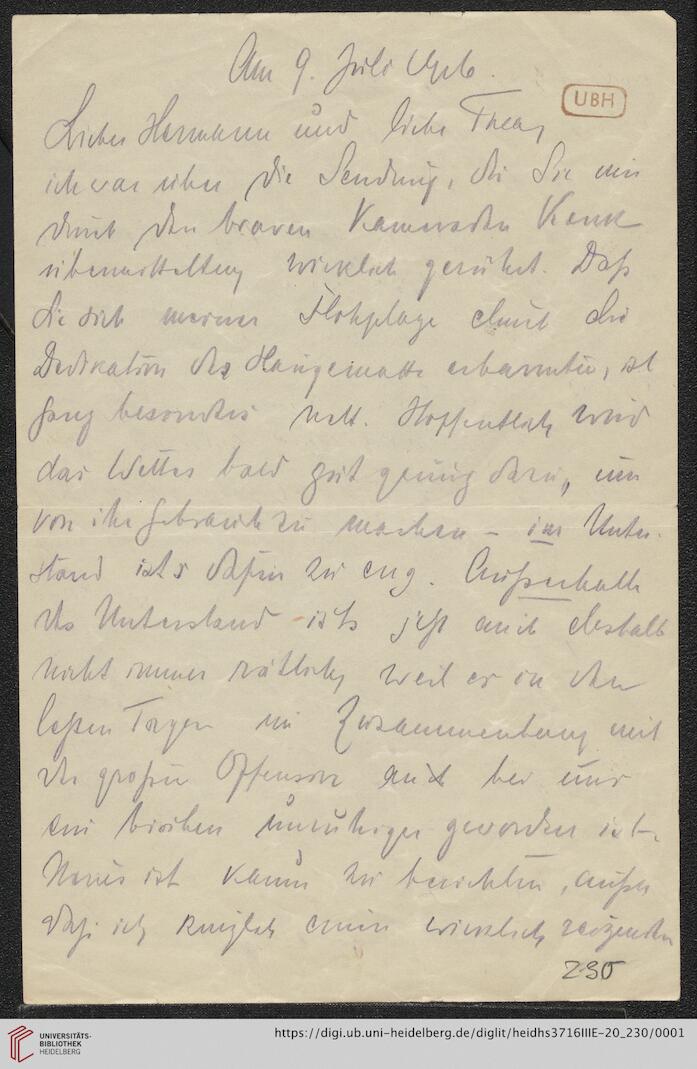 Am 9. Juli
UBH
Lieber Hermann und liebe Thea,
ich war über die Sendung, die Sie mir
durch den braven Kameraden
übermittelten, wirklich gerührt. Daß
Sie sich meiner Flohplage durch die
Dedikation der Hängematte erbarmten, ist
ganz besonders nett. Hoffentlich wird
das Wetter bald gut genug dazu, um
von ihr Gebrauch zu machen – im Unter-
stand ist's dafür zu eng. Außerhalb
des Unterstand ists jetzt auch deshalb
nicht immer rätlich, weil es in den
letzten Tagen im Zusammenhang mit
der großen Offensive auch bei uns
ein bischen unruhiger geworden ist.
Neues ist kaum zu berichten, außer
daß ich einen wirklich reizenden
230
UNIVERSITÄTS-
BIBLIOTHEK
HEIDELBERG
https://digi.ub.uni-heidelberg.de/diglit/heidhs3716IIIE-20_230/0001